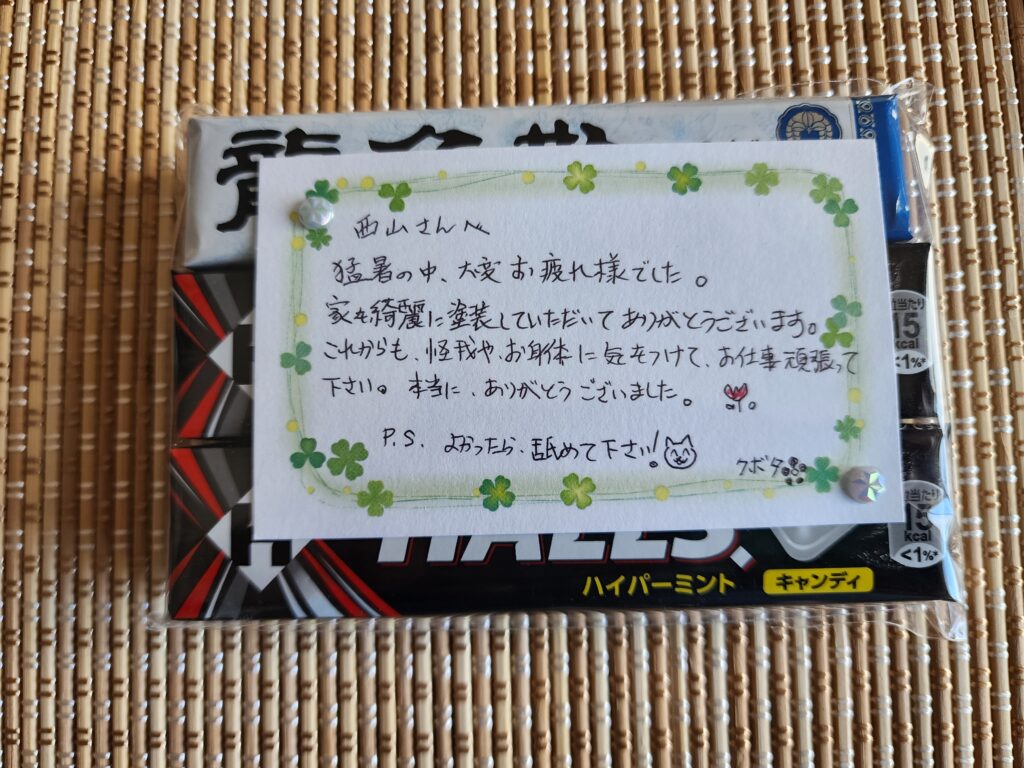 龍角散
西山さんへ
猛暑の中、大変お疲れ様でした。
家も綺麗に塗装していただいてありがとうございます。
これからも、怪我や、お身体に気をつけて、お仕事頑張って
下さい。本当に、ありがとうございました。
P.S. よかったら、舐めて下さい!
クボタ
当たり
15
kcal
<1%*
当たり
15
kcal
<1%*
HALLS
ハイパーミント
キャンディ